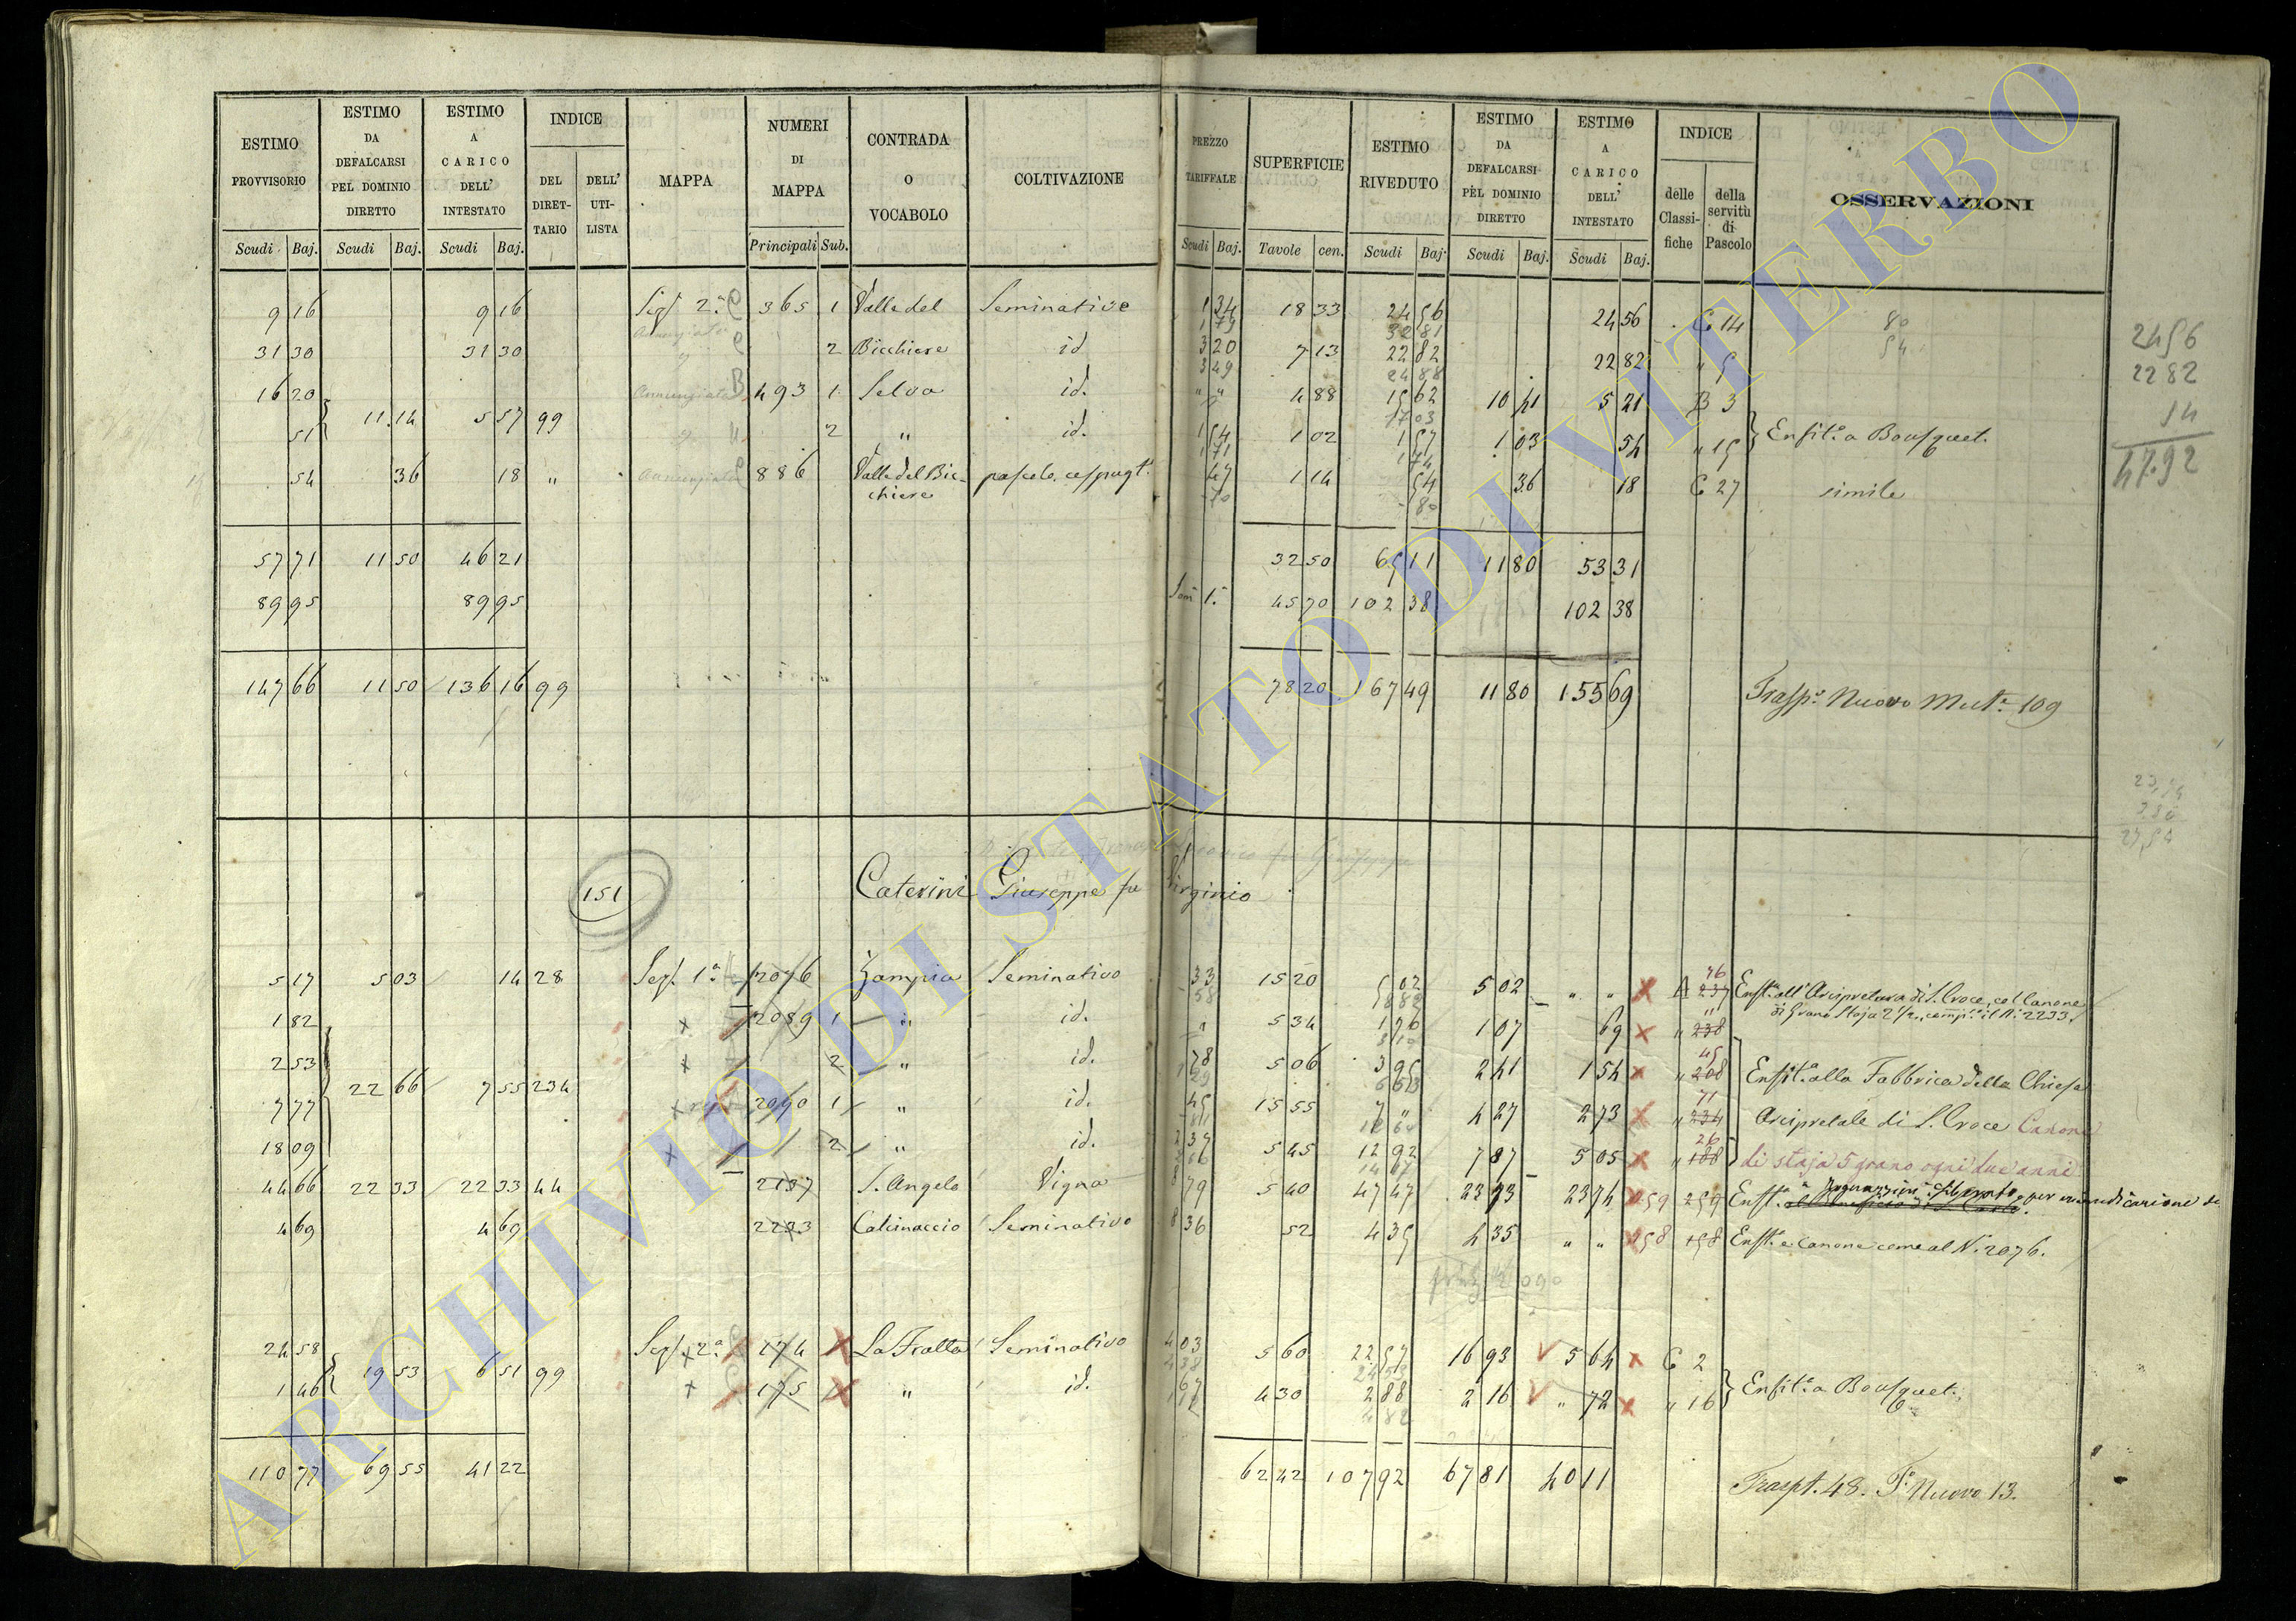 ESTIMO PROVVISORIO | ESTIMO DA DEFALCARSI PEL DOMINIO DIRETTO | ESTIMO A CARICO DELL' INTESTATO | INDICE DEL DIRETTARIO | DELL' UTILISTA | MAPPA | NUMERI DI MAPPA | CONTRADA O VOCABOLO | COLTIVAZIONE | PREZZO TARIFFALE | SUPERFICIE | ESTIMO RIVEDUTO | ESTIMO DA DEFALCARSI PEL DOMINIO DIRETTO | ESTIMO A CARICO DELL' INTESTATO | INDICE delle Classifiche | della servitù di Pascolo | OSSERVAZIONI
Scudi Baj. Scudi Baj. Scudi Baj. Principali Sub. Scudi Baj. Tavole cen. Scudi Baj. Scudi Baj. Scudi Baj.
9 16 9 16 Sez. 2.a C 365 1 Valle del Seminativo 1 34 18 33 24 56 24 56 C 14 80
1 79 32 81
31 30 31 30 2 Bicchiere id 3 20 7 13 22 82 22 82 " 5 54
3 49 24 88
16 20 Annunziata B 493 1 Selva id. " " 4 88 15 62 10 41 5 21 B 3
11 14 5 57 99 17 03
51 2 " id. 1 54 1 02 1 57 1 03 54 " 15 Enfit.a a Bousquet.
1 71 1 74
54 36 18 " Annunziata C 886 Valle del Bic- pascolo cespugt.o 47 1 14 54 36 18 C 27 simile
chiere 70 80
57 71 11 50 46 21 32 50 65 11 11 80 53 31
89 95 89 95 Som 1.a 45 70 102 38 102 38
147 66 11 50 136 16 99 78 20 167 49 11 80 155 69 Trasp.o Nuovo Mut.e 109
24 56
22 82
14
47.92
23,54
3.80
27,54
151 Caterini Giuseppe fu Virginio
5 17 5 03 14 28 Sez. 1.a 2076 Zampia Seminativo 33 15 20 5 02 5 02 " " A 237 76 Enft.a all'Arcipretura di S. Croce, col Canone
58 8 82 di Grano Staja 2 1/2, comp.o il N. 2233.
1 82 2089 1 " id. " 5 34 1 76 1 07 69 " 238
2 53 2 " id. 78 5 06 3 95 2 41 1 54 " 208 45 Enfit.a alla Fabbrica della Chiesa
22 66 7 55 234
7 77 2090 1 " id. 45 15 55 7 " 4 27 2 73 " 234 71 Arcipretale di S. Croce Canone
18 09 2 " id. 2 37 5 45 12 92 7 87 5 05 " 188 26 di staja 5 grano ogni due anni
44 66 22 33 22 33 44 2137 S. Angelo Vigna 8 79 5 40 47 47 23 73 23 74 259 Enft.a per
4 69 4 69 2233 Calcinaccio Seminativo 8 36 52 4 35 4 35 " " 158 158 Enft.a e Canone come al N. 2076.
24 58 Sez. 2.a 174 La Fratta Seminativo 4 03 5 60 22 57 16 93 5 64 C 2
19 53 6 51 99 4 38 24 53
1 46 175 " id. 67 4 30 2 88 2 16 " 72 " 16 Enfit.a a Bousquet.
1 12 4 82
110 77 69 55 41 22 62 42 107 92 67 81 40 11 Traspt. 48. F.o Nuovo 13.
ARCHIVIO DI STATO DI VITERBO